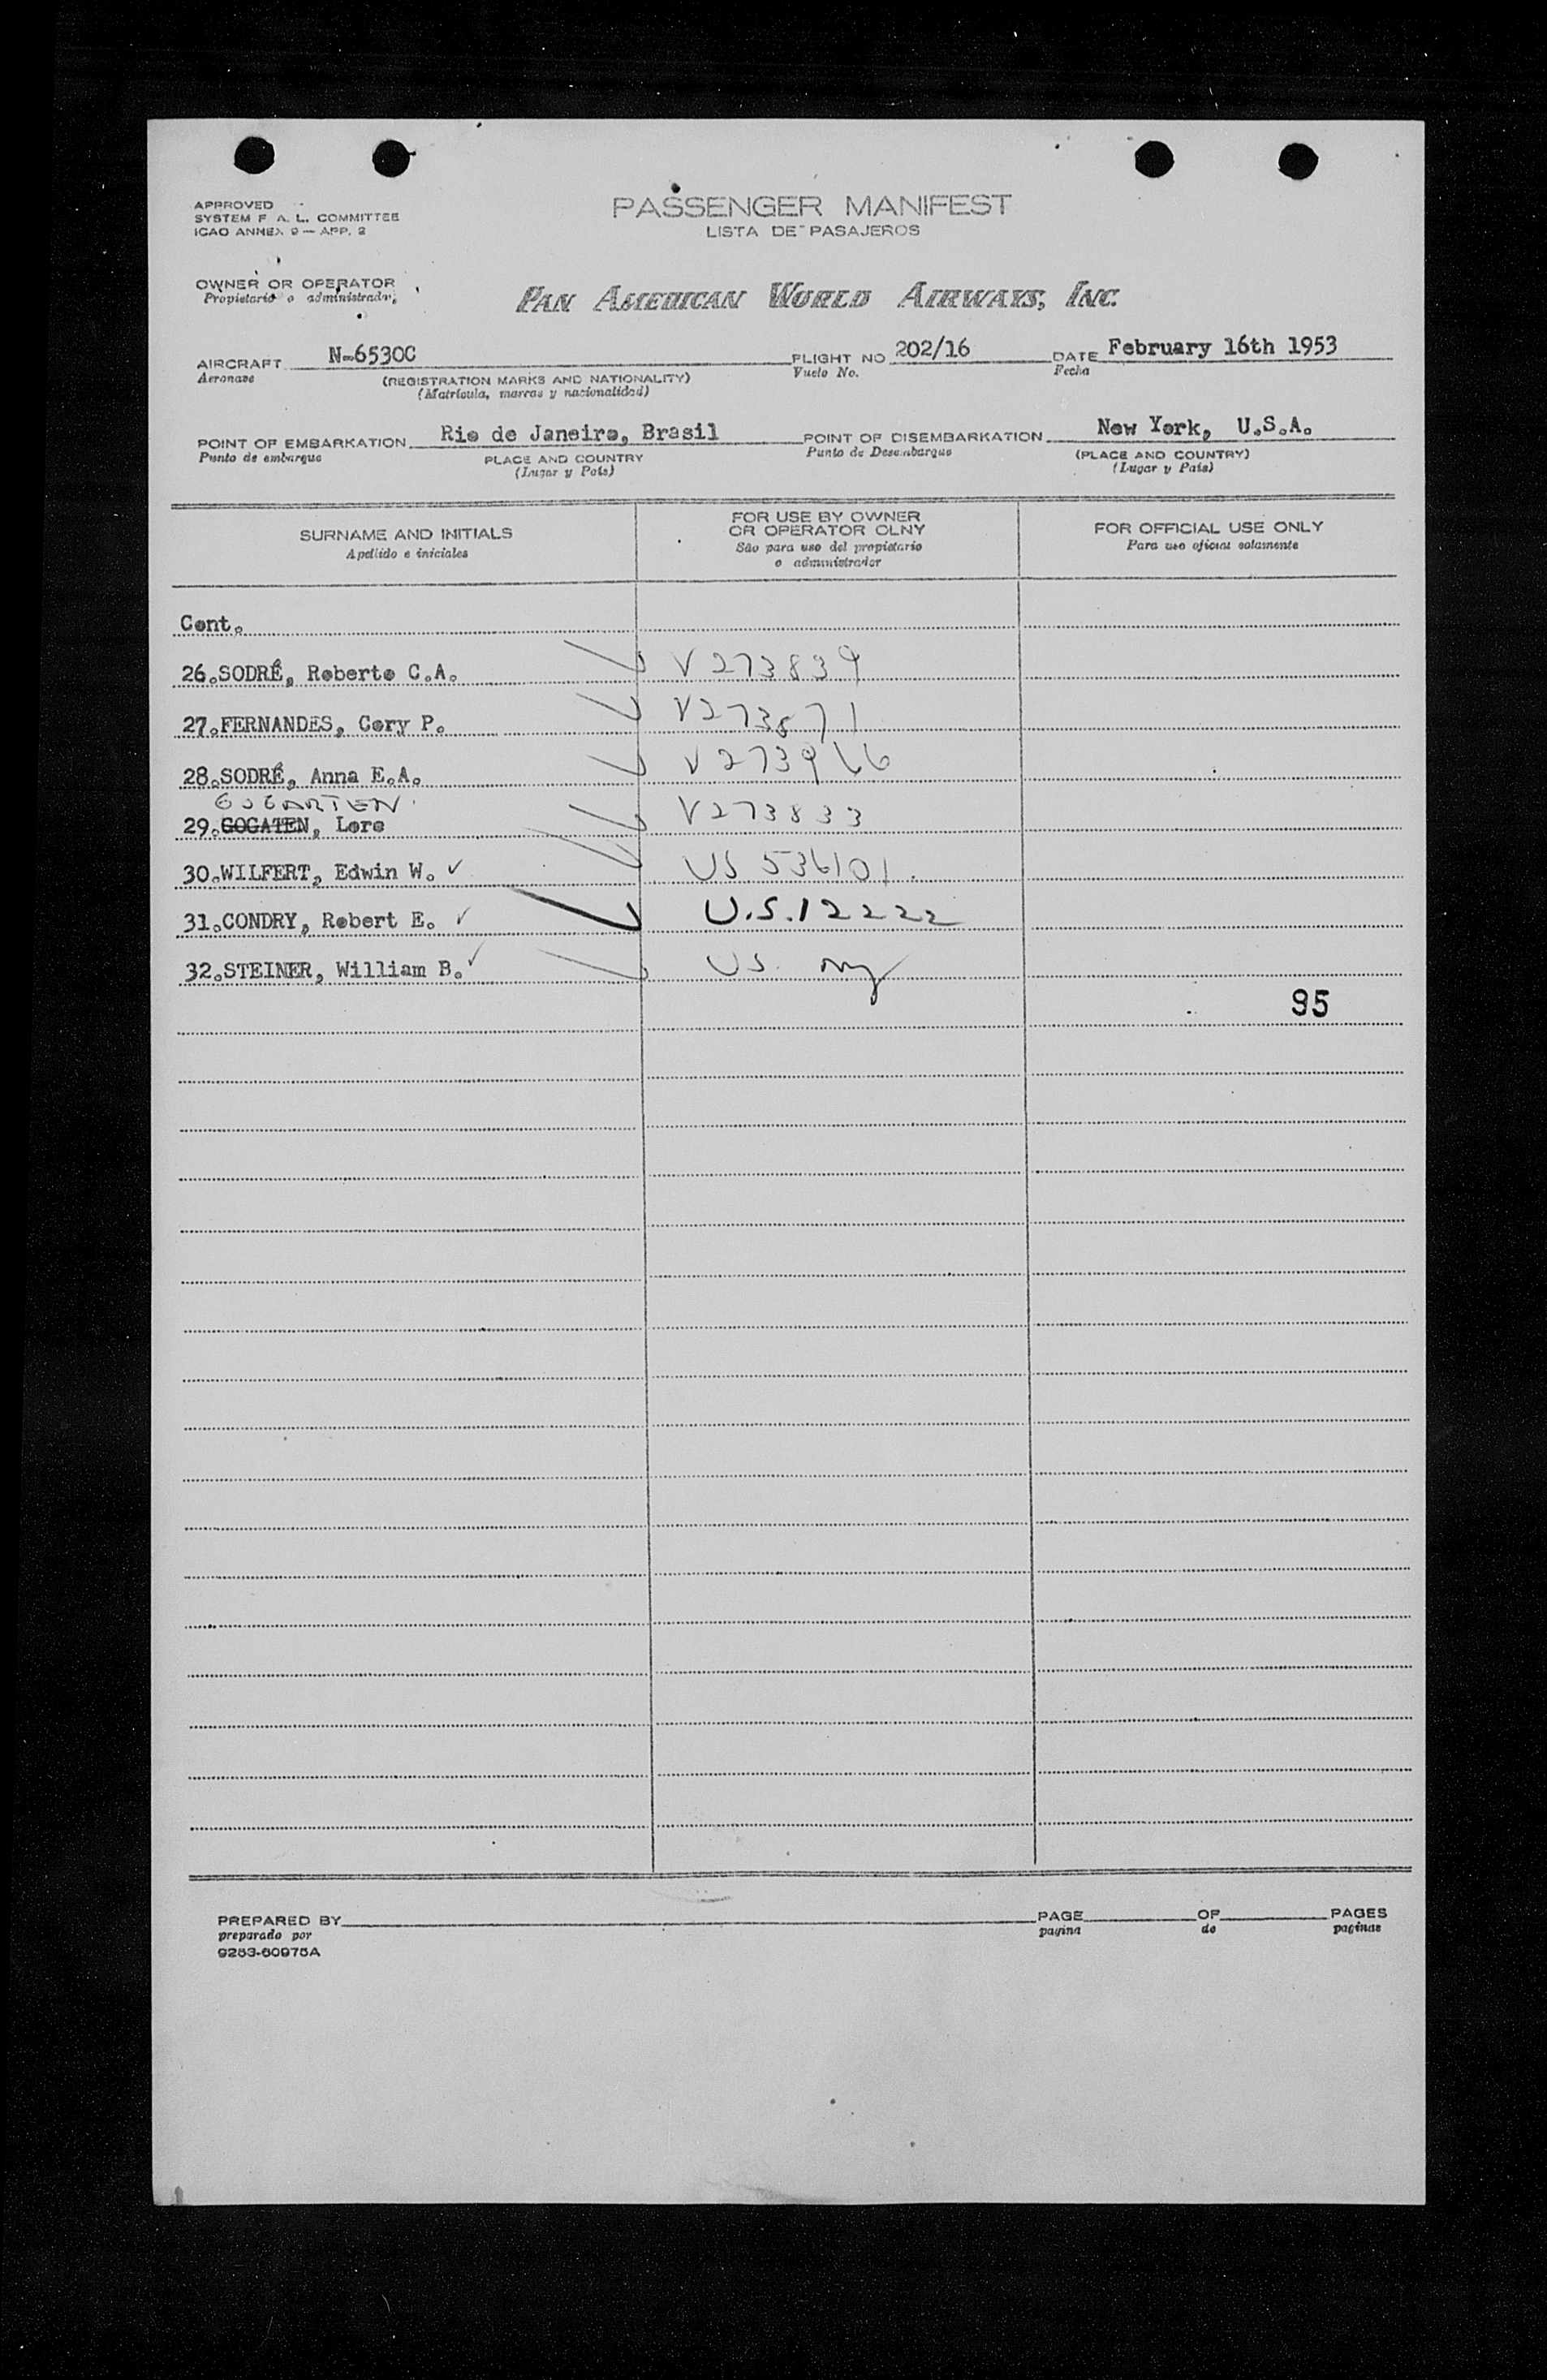 APPROVED
SYSTEM F. A. L. COMMITTEE
ICAO ANNEX 9 — APP. 2
PASSENGER MANIFEST
LISTA DE PASAJEROS
OWNER OR OPERATOR
Propietario o administrador
PAN AMERICAN WORLD AIRWAYS, INC.
AIRCRAFT N-6530C FLIGHT NO 202/16 DATE February 16th 1953
Aeronave (REGISTRATION MARKS AND NATIONALITY) Vuelo No. Fecha
(Matrícula, marcas y nacionalidad)
POINT OF EMBARKATION Rio de Janeiro, Brasil POINT OF DISEMBARKATION New York, U.S.A.
Punto de embarque PLACE AND COUNTRY Punto de Desembarque (PLACE AND COUNTRY)
(Lugar y País) (Lugar y País)
SURNAME AND INITIALS FOR USE BY OWNER OR OPERATOR OLNY FOR OFFICIAL USE ONLY
Apellido e iniciales São para uso del propietario o administrador Para uso oficial solamente
Cont.
26.SODRÉ, Roberto C.A. V 273839
27.FERNANDES, Cory P. V273871
28.SODRÉ, Anna E.A. V 273966
GOGARTEN
29.GOGATEN, Lore V273833
30.WILFERT, Edwin W. ✓ US 536101.
31.CONDRY, Robert E. ✓ U.S.12222
32.STEINER, William B. ✓ US. ny
95
PREPARED BY PAGE OF PAGES
preparado por pagina de paginas
9253-60975A